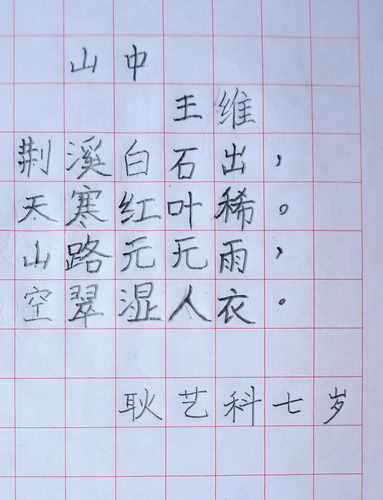 山中
王维
荆溪白石出，
天寒红叶稀。
山路元无雨，
空翠湿人衣。
耿艺科七岁